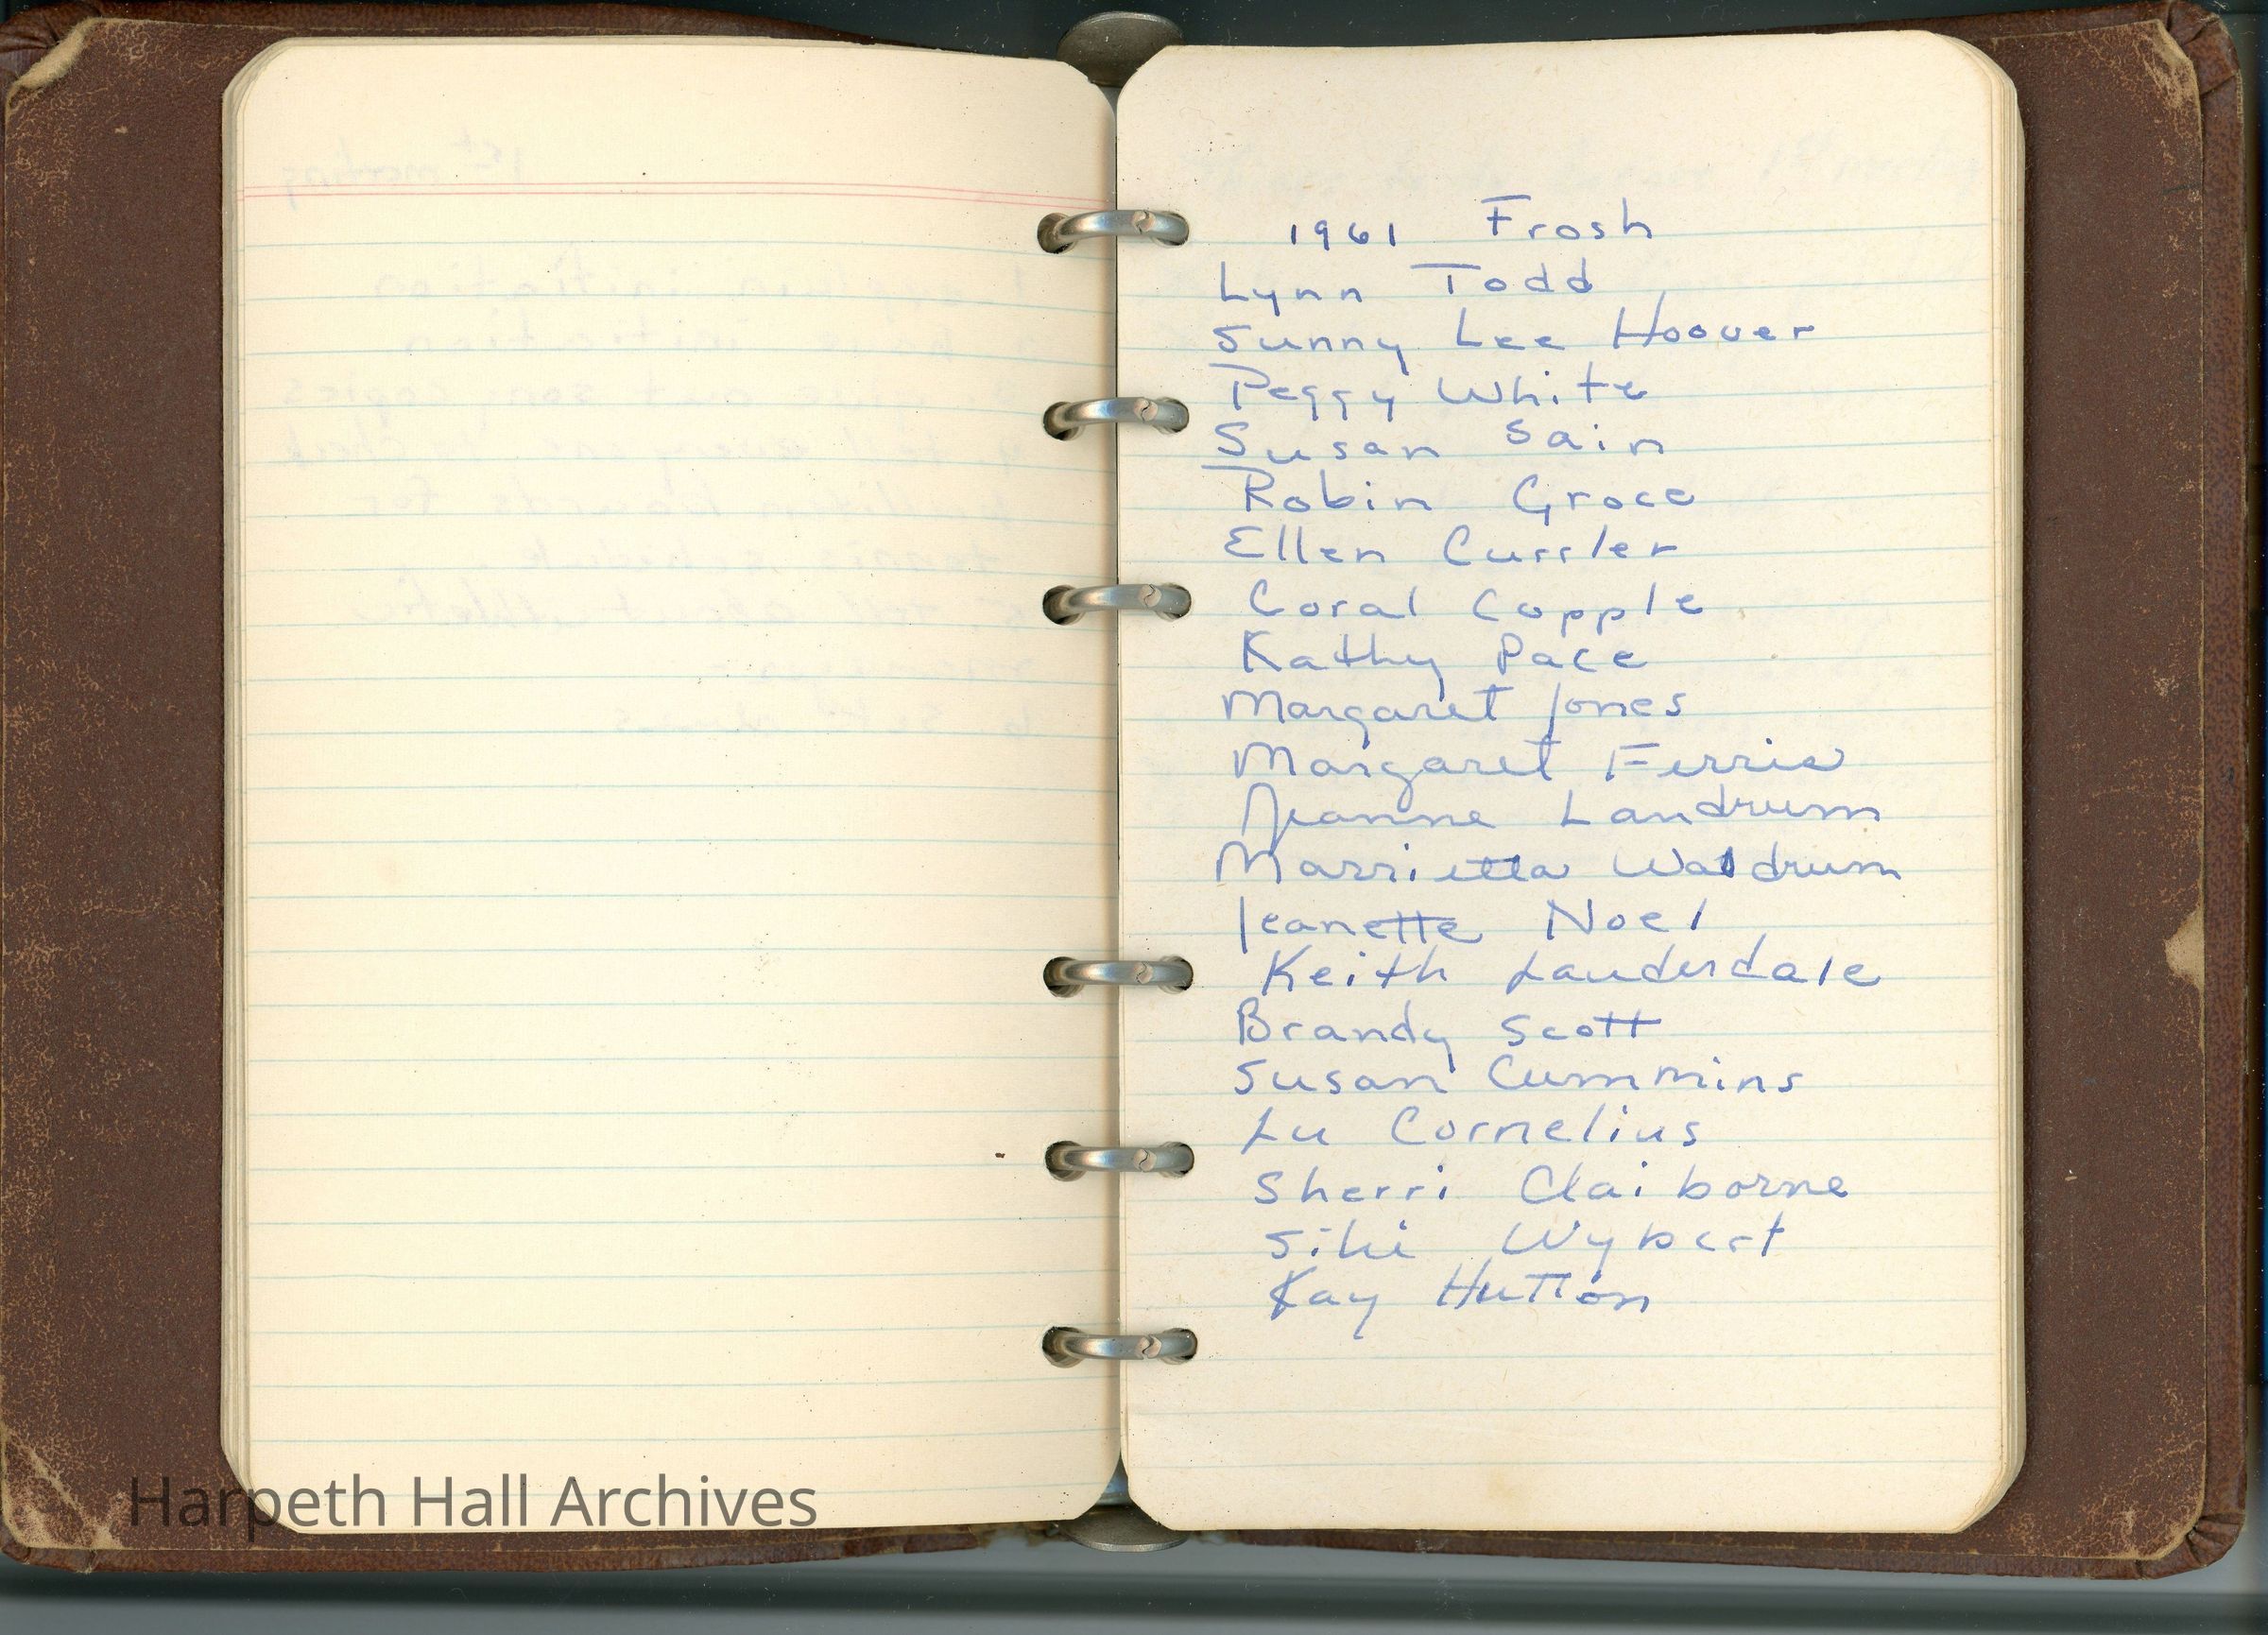 1961 Frosh
Lynn Todd
Sunny Lee Hoover
Peggy White
Susan Sain
Robin Groce
Ellen Currler
Coral Copple
Kathy Pace
Margaret Jones
Margaret Ferris
Jeanne Landrum
Marrietta Waldrum
Jeanette Noel
Keith Lauderdale
Brandy Scott
Susan Cummins
Lu Cornelius
Sherri Claiborne
Wybert
Kay Hutton
Harpeth Hall Archives